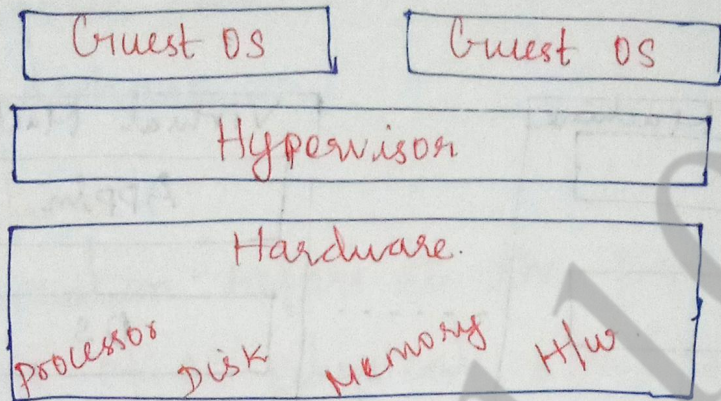 Guest OS Guest OS
Hypervisor
Hardware.
Processor Disk Memory H/w